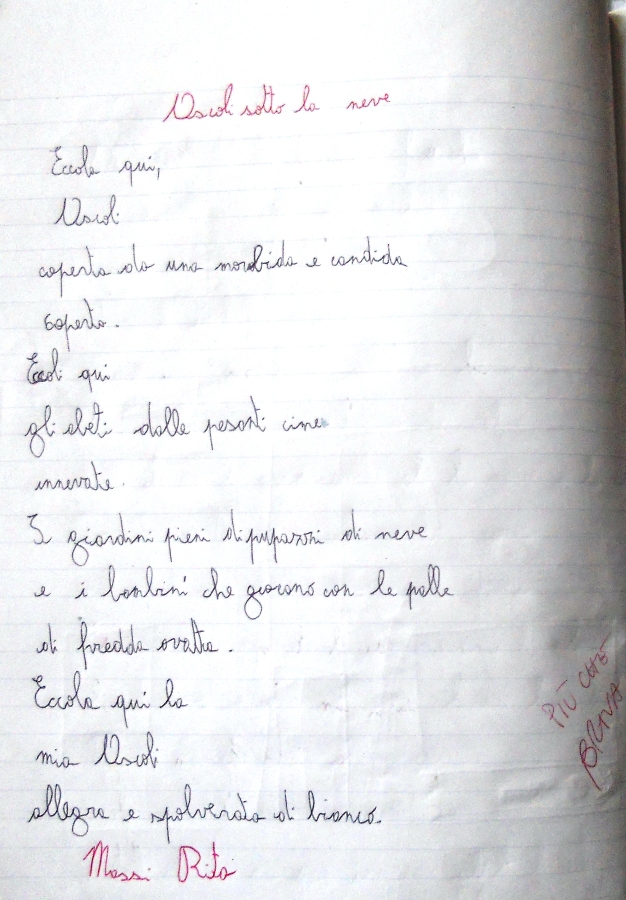 Ascoli sotto la neve
Eccola qui,
Ascoli
coperta da una morbida e candida
coperta.
Eccoli qui
gli abeti dalle pesanti cime
innevate.
I giardini pieni di pupazzi di neve
e i bambini che giocano con le palle
di fredda ovatta.
Eccola qui la
mia Ascoli
allegra e spolverata di bianco.
Massi Rita
PIÙ CHE
BRAVA